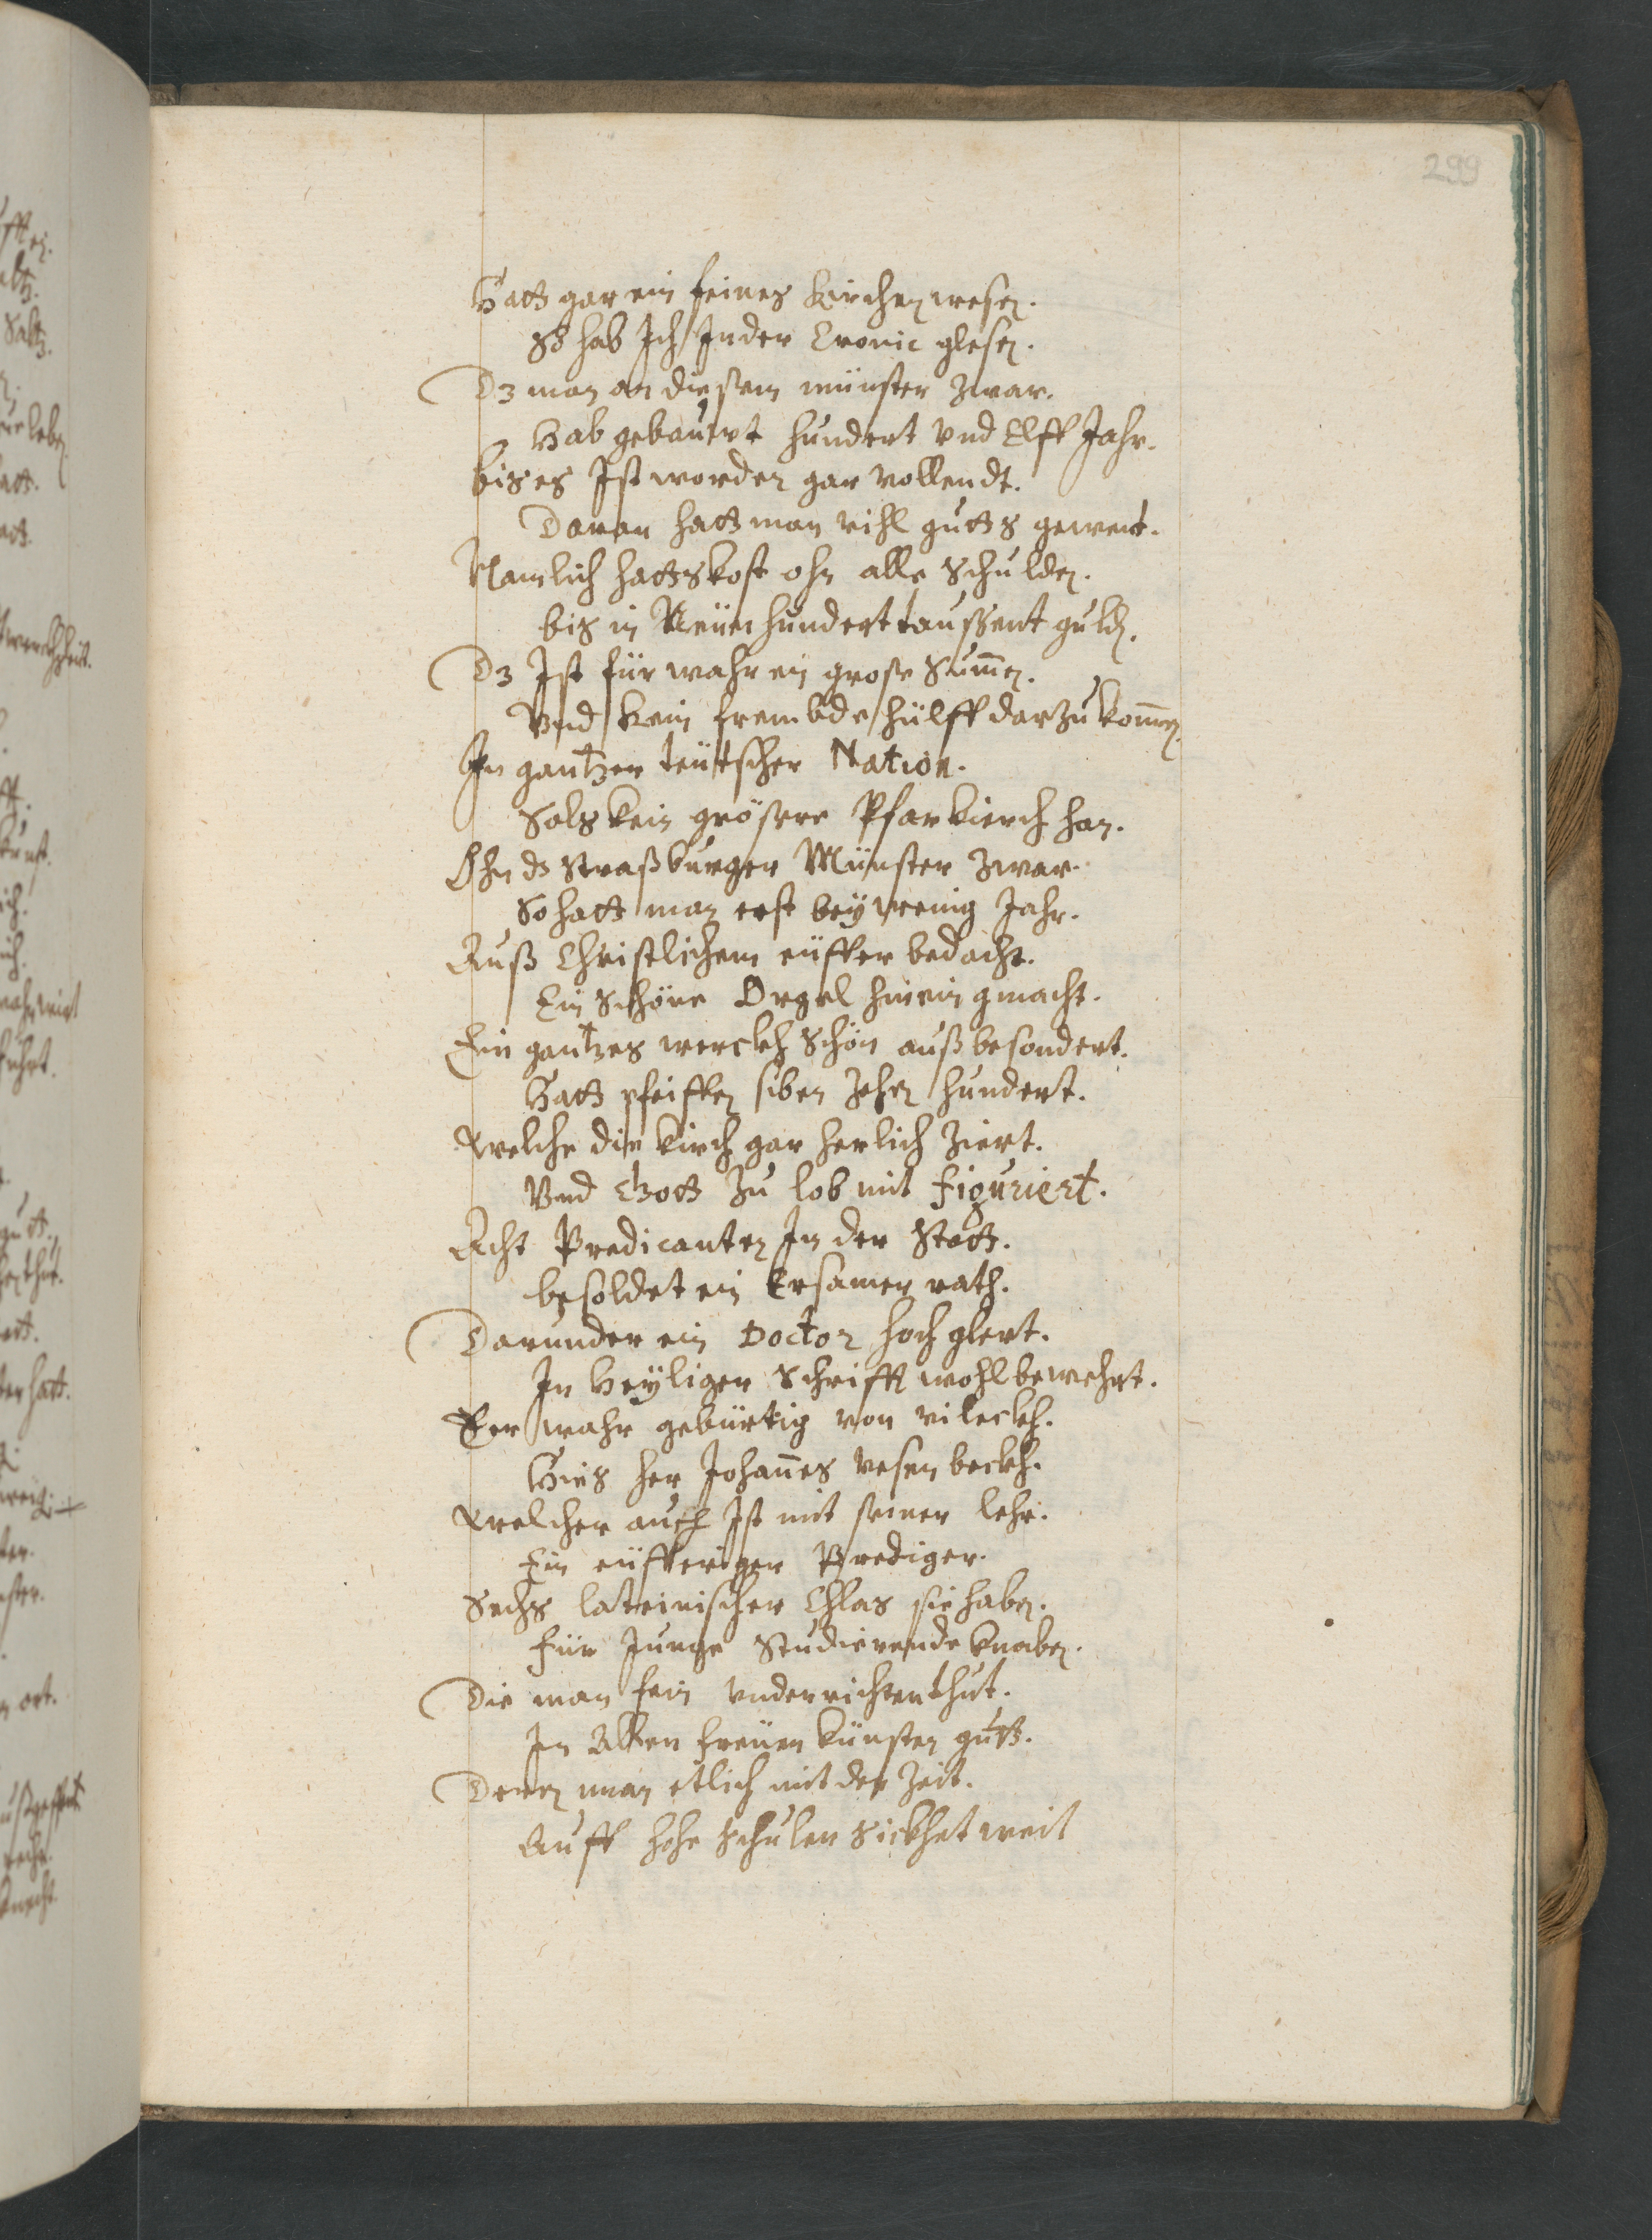 299
Hatt gar ein feines Kirchen wesen.
So hab Ich Inder Cronic glesen.
Dz man an diesem münster zwar.
Hab gebauwt hundert vnd Elff Jahr.
bis es Ist worden gar vollendt.
Daran hatt man vihl gutts gewent.
Namlich hatts kost ohn alle schulden.
bis in Neün hundert taussent guldn.
Dz Ist für wahr ein grose Summen.
Vnd kein frembde hülff darzu kommen.
In gantzer teütscher Nation.
Sols kein grösere Pfarkierch han.
Ohn ds Straßburger Münster zwar.
So hatt man erst bey wenig Jahr.
Auß Christlichem eüffer bedacht.
Ein schöne Orgel hinein gmacht.
Ein gantzes werckh schön auß besondert.
Hatt pfeiffen siben zehen hundert.
Welche die kirch gar herlich ziert.
Vnd Gott zu lob mit figuriert.
Acht Predicanten In der Statt.
besoldet ein Ersamer rath.
Darunder ein Doctor hoch glert.
In Heyliger Schrifft wohl bewehrt.
Er wahr gebürtig von vileckh.
Hies her Johannes vesenbeckh.
Welcher auch Ist mit seiner lehr.
Ein eüfferiger Prediger.
Sechs lateinischer Chlas sie haben.
für Junge Studierende knaben.
Die man fein vnderrichten thut.
In Allen freüen künsten gutt.
Deren man etlich mit der Zeit.
Auff hohe schulen Sickhet weit